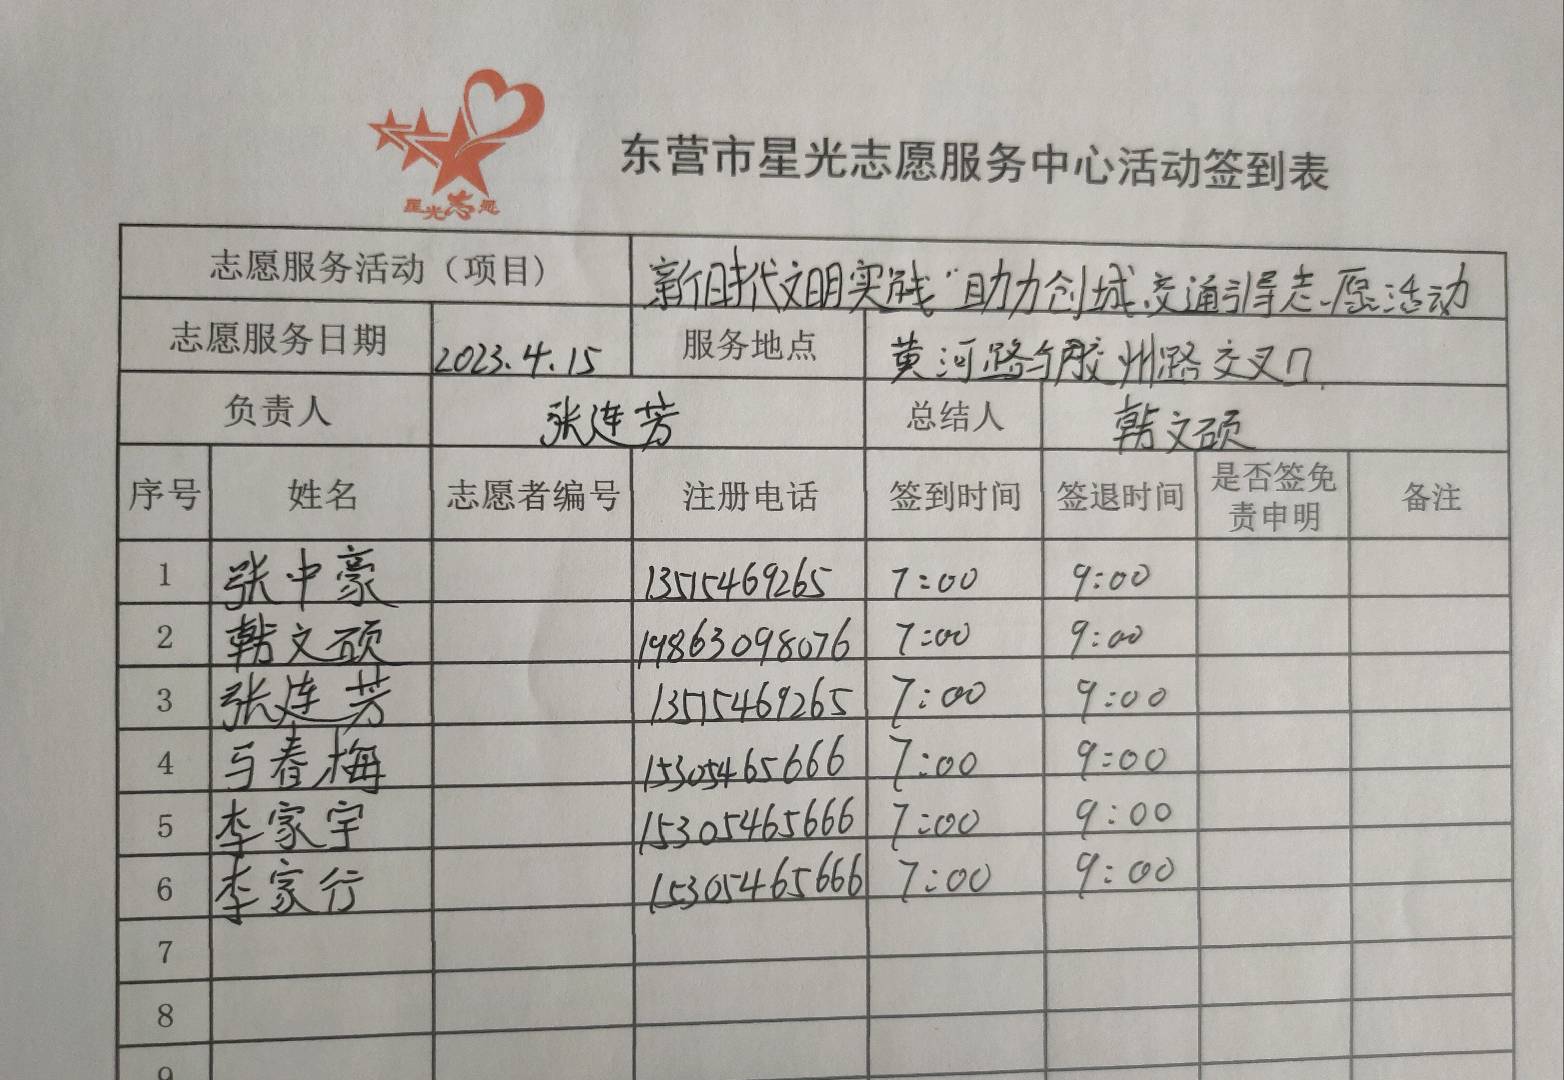 星光志愿
东营市星光志愿服务中心活动签到表
志愿服务活动（项目） 新时代文明实践"助力创城,交通引导志愿活动
志愿服务日期 2023.4.15 服务地点 黄河路与胶州路交叉口
负责人 张连芳 总结人 韩文硕
序号 姓名 志愿者编号 注册电话 签到时间 签退时间 是否签免责申明 备注
1 张中豪 13515469265 7:00 9:00
2 韩文硕 19863098076 7:00 9:00
3 张连芳 13515469265 7:00 9:00
4 马春梅 15305465666 7:00 9:00
5 李家宇 15305465666 7:00 9:00
6 李家行 15305465666 7:00 9:00
7
8
9